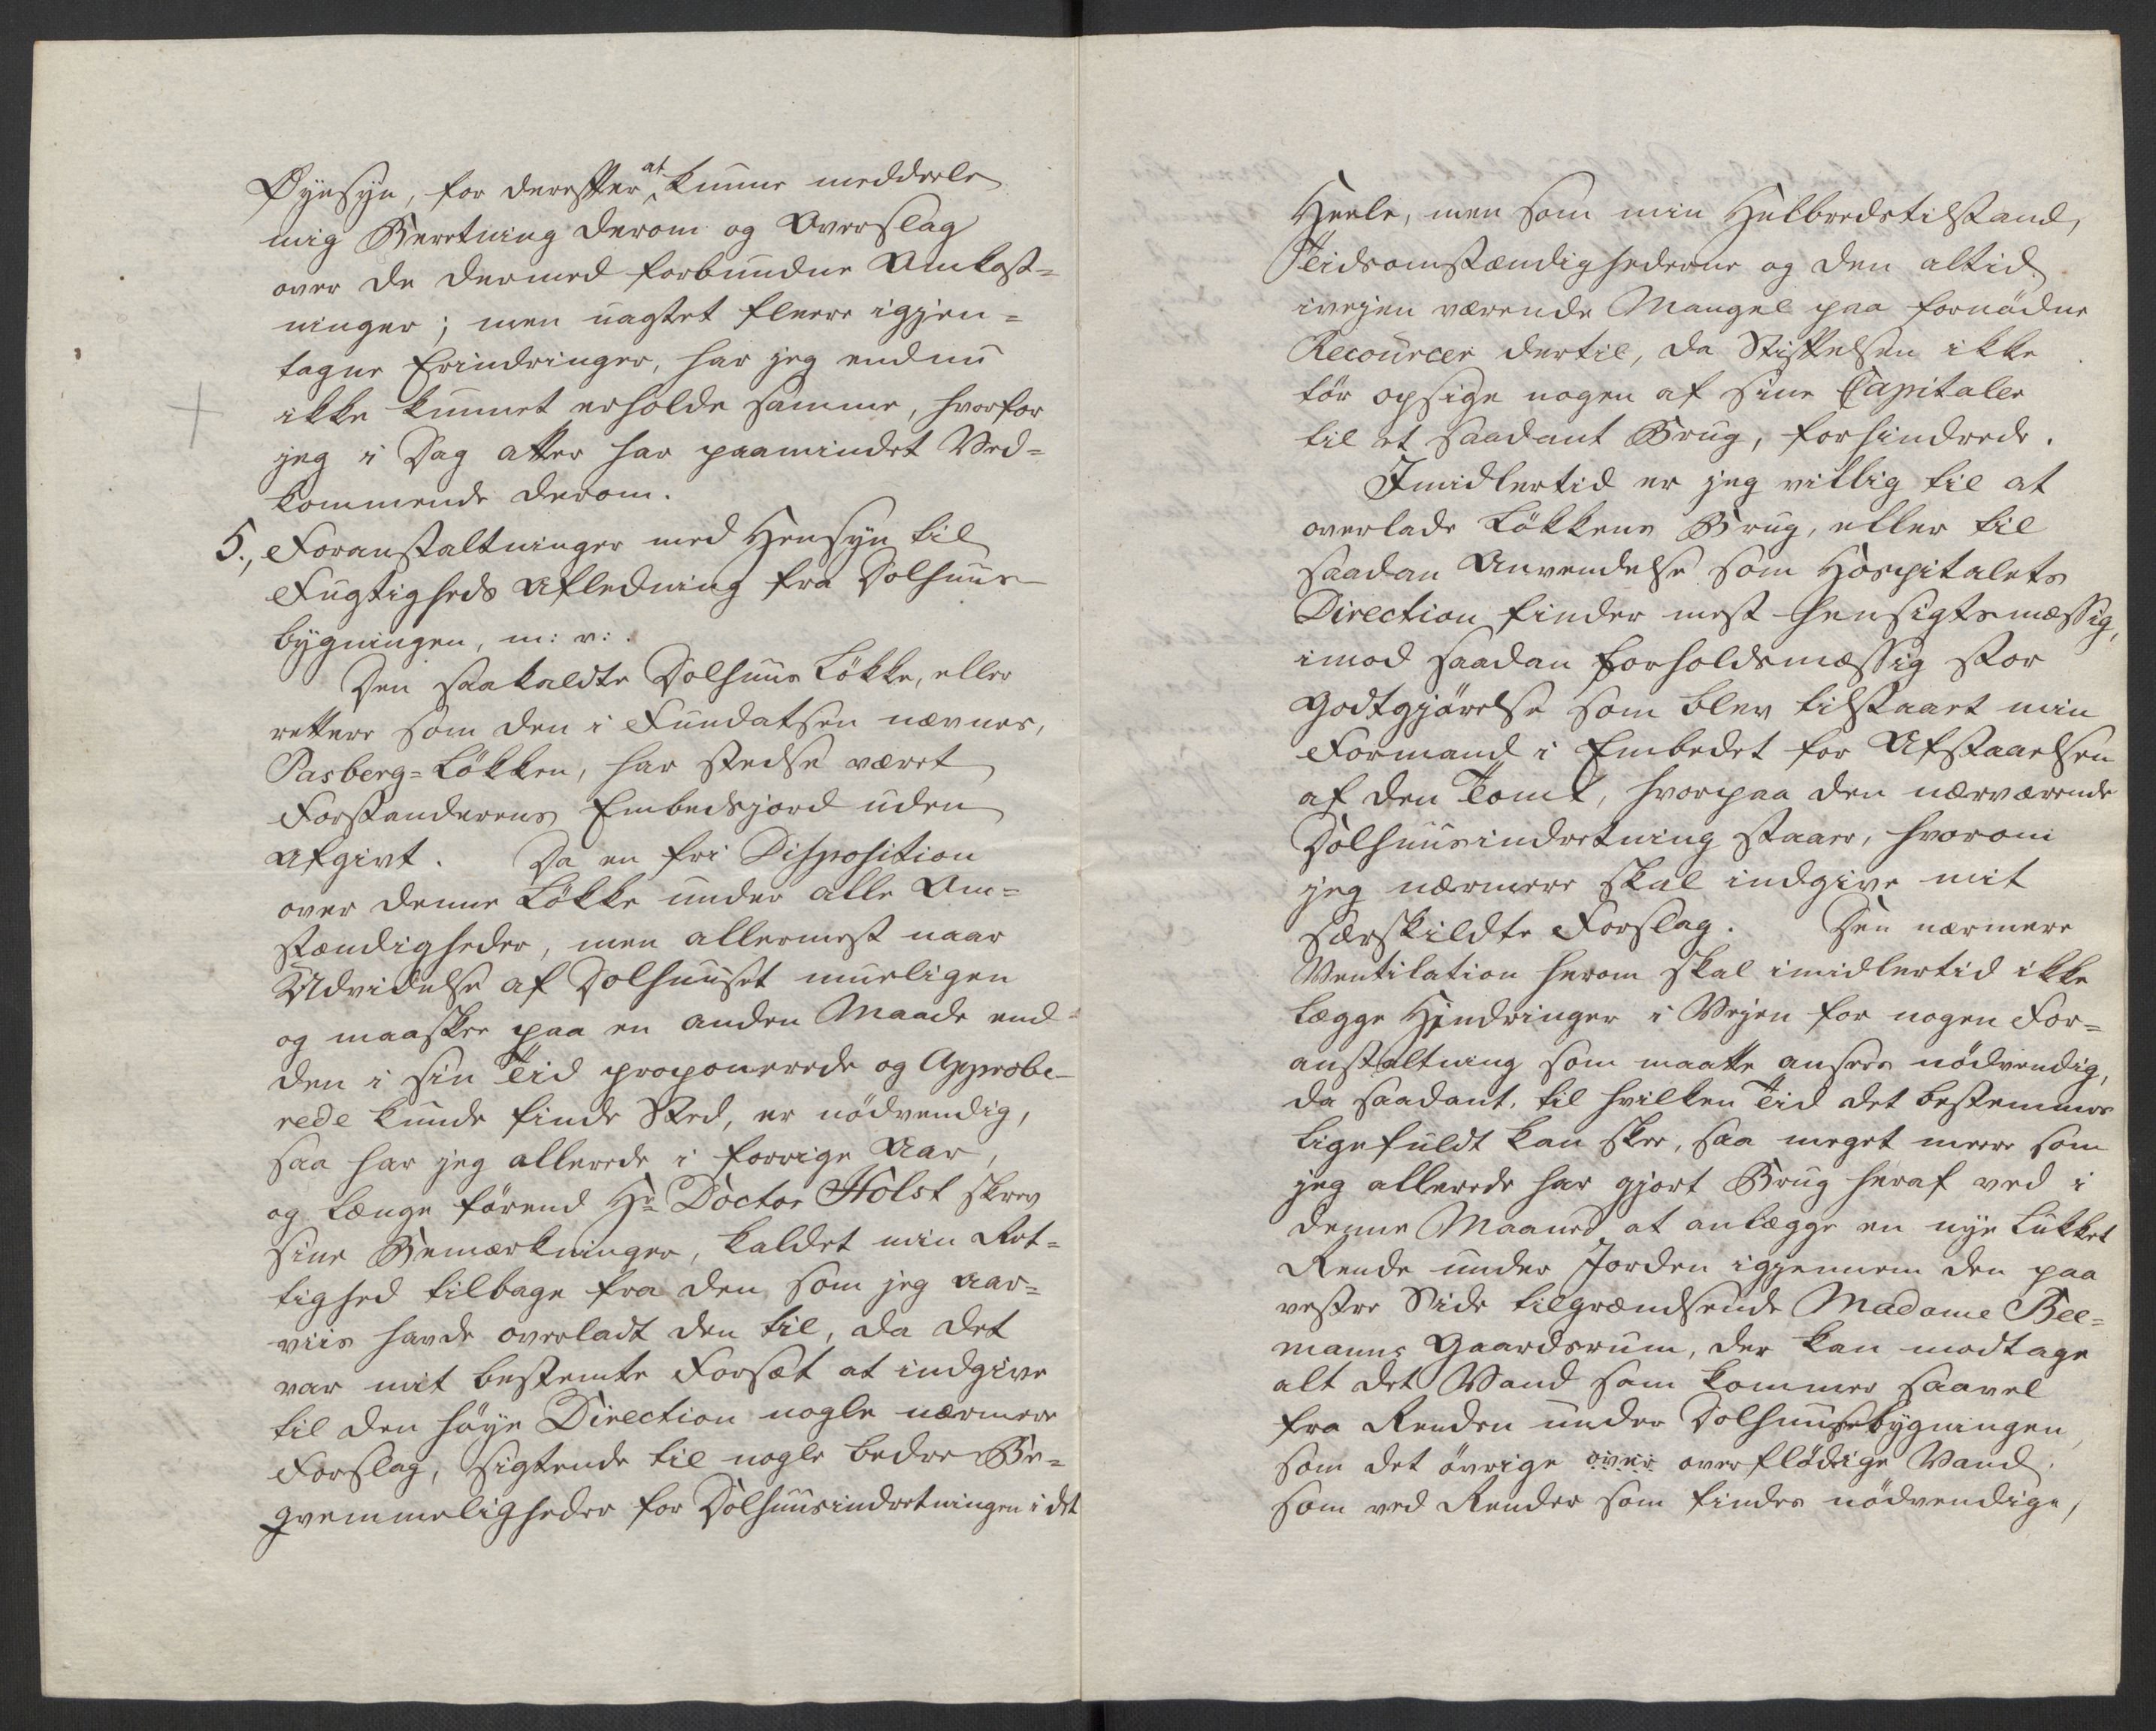 Øyesyn, for derefter at kunne meddeele
mig Beretning derom og Overslag
over de dermed forbundne Omkost=
ninger; men uagtet fleere igjen=
tagne Erindringer, har jeg endnu
ikke kunnet erholde samme, hvorfor
jeg i Dag atter har paamindet Ved=
kommende derom.
5., Foranstaltninger med Hensyn til
Fugtigheds Afledning fra Dolhuus-
bygningen, m: v: .
Den saakaldte Dolhuus Løkke, eller
rettere som den i Fundatsen nævnes,
Pasberg=Løkken, har stedse været
Forstanderens Embedsjord uden
Afgivt. Da en fri Disposition
over denne Løkke under alle Om=
stændigheder, men allermest naar
Udvidelse af Dolhuuset mueligen
og maaskee paa en anden Maade end=
den i sin Tid proponerede og Approbe-
rede kunde finde Sted, er nødvendig,
saa har jeg allerede i forrige Aar,
og længe førend Hr Doctor Holst skrev
sine Bemærkninger, kaldet min Ret=
tighed tilbage fra den som jeg aar=
viis havde overladt den til, da det
var mit bestemte Forsæt at indgive
til den høye Direction nogle nærmere
Forslag, sigtende til nogle bedre Be=
qvemmeligheder for Dolhuusindretningen i det
Heele, men som min Helbredstilstand,
Tidsomstændighederne og den altid
iveien værende Mangel paa fornødne
Recourcer dertil, da Stiftelsen ikke
tør opsige nogen af sine Capitaler
til et saadant Brug, forhindrede.
Imidlertid er jeg villig til at
overlade Løkkens Brug, eller til
saadan Anvendelse som Hospitalets
Direction finder mest hensigtsmæssig,
imod saadan forholdsmæssig stor
Godtgjørelse som blev tilstaaet min
Formand i Embedet for Afstaaelsen
af den Tomt, hvorpaa den nærværende
Dolhuusindretning staaer, hvorom
jeg nærmere skal indgive mit
særskildte Forslag. Den nærmere
Ventilation herom skal imidlertid ikke
lægge Hindringer i Vejen for nogen For=
anstaltning som maatte ansees nødvendig,
da saadant, til hvilken Tid det bestemmes
ligefuldt kan skee, saa meget meere som
jeg allerede har gjort Brug heraf ved i
denne Maaned at anlægge en nye lukket
Rende under Jorden igjennem den paa
vestre Side tilgrændsende Madame Bee=
manns Gaardsrum, der kan modtage
alt det Vand som kommer saavel
fra Renden under Dolhuusebygningen,
som det øvrige over overflødige Vand,
som ved Render som findes nødvendige,